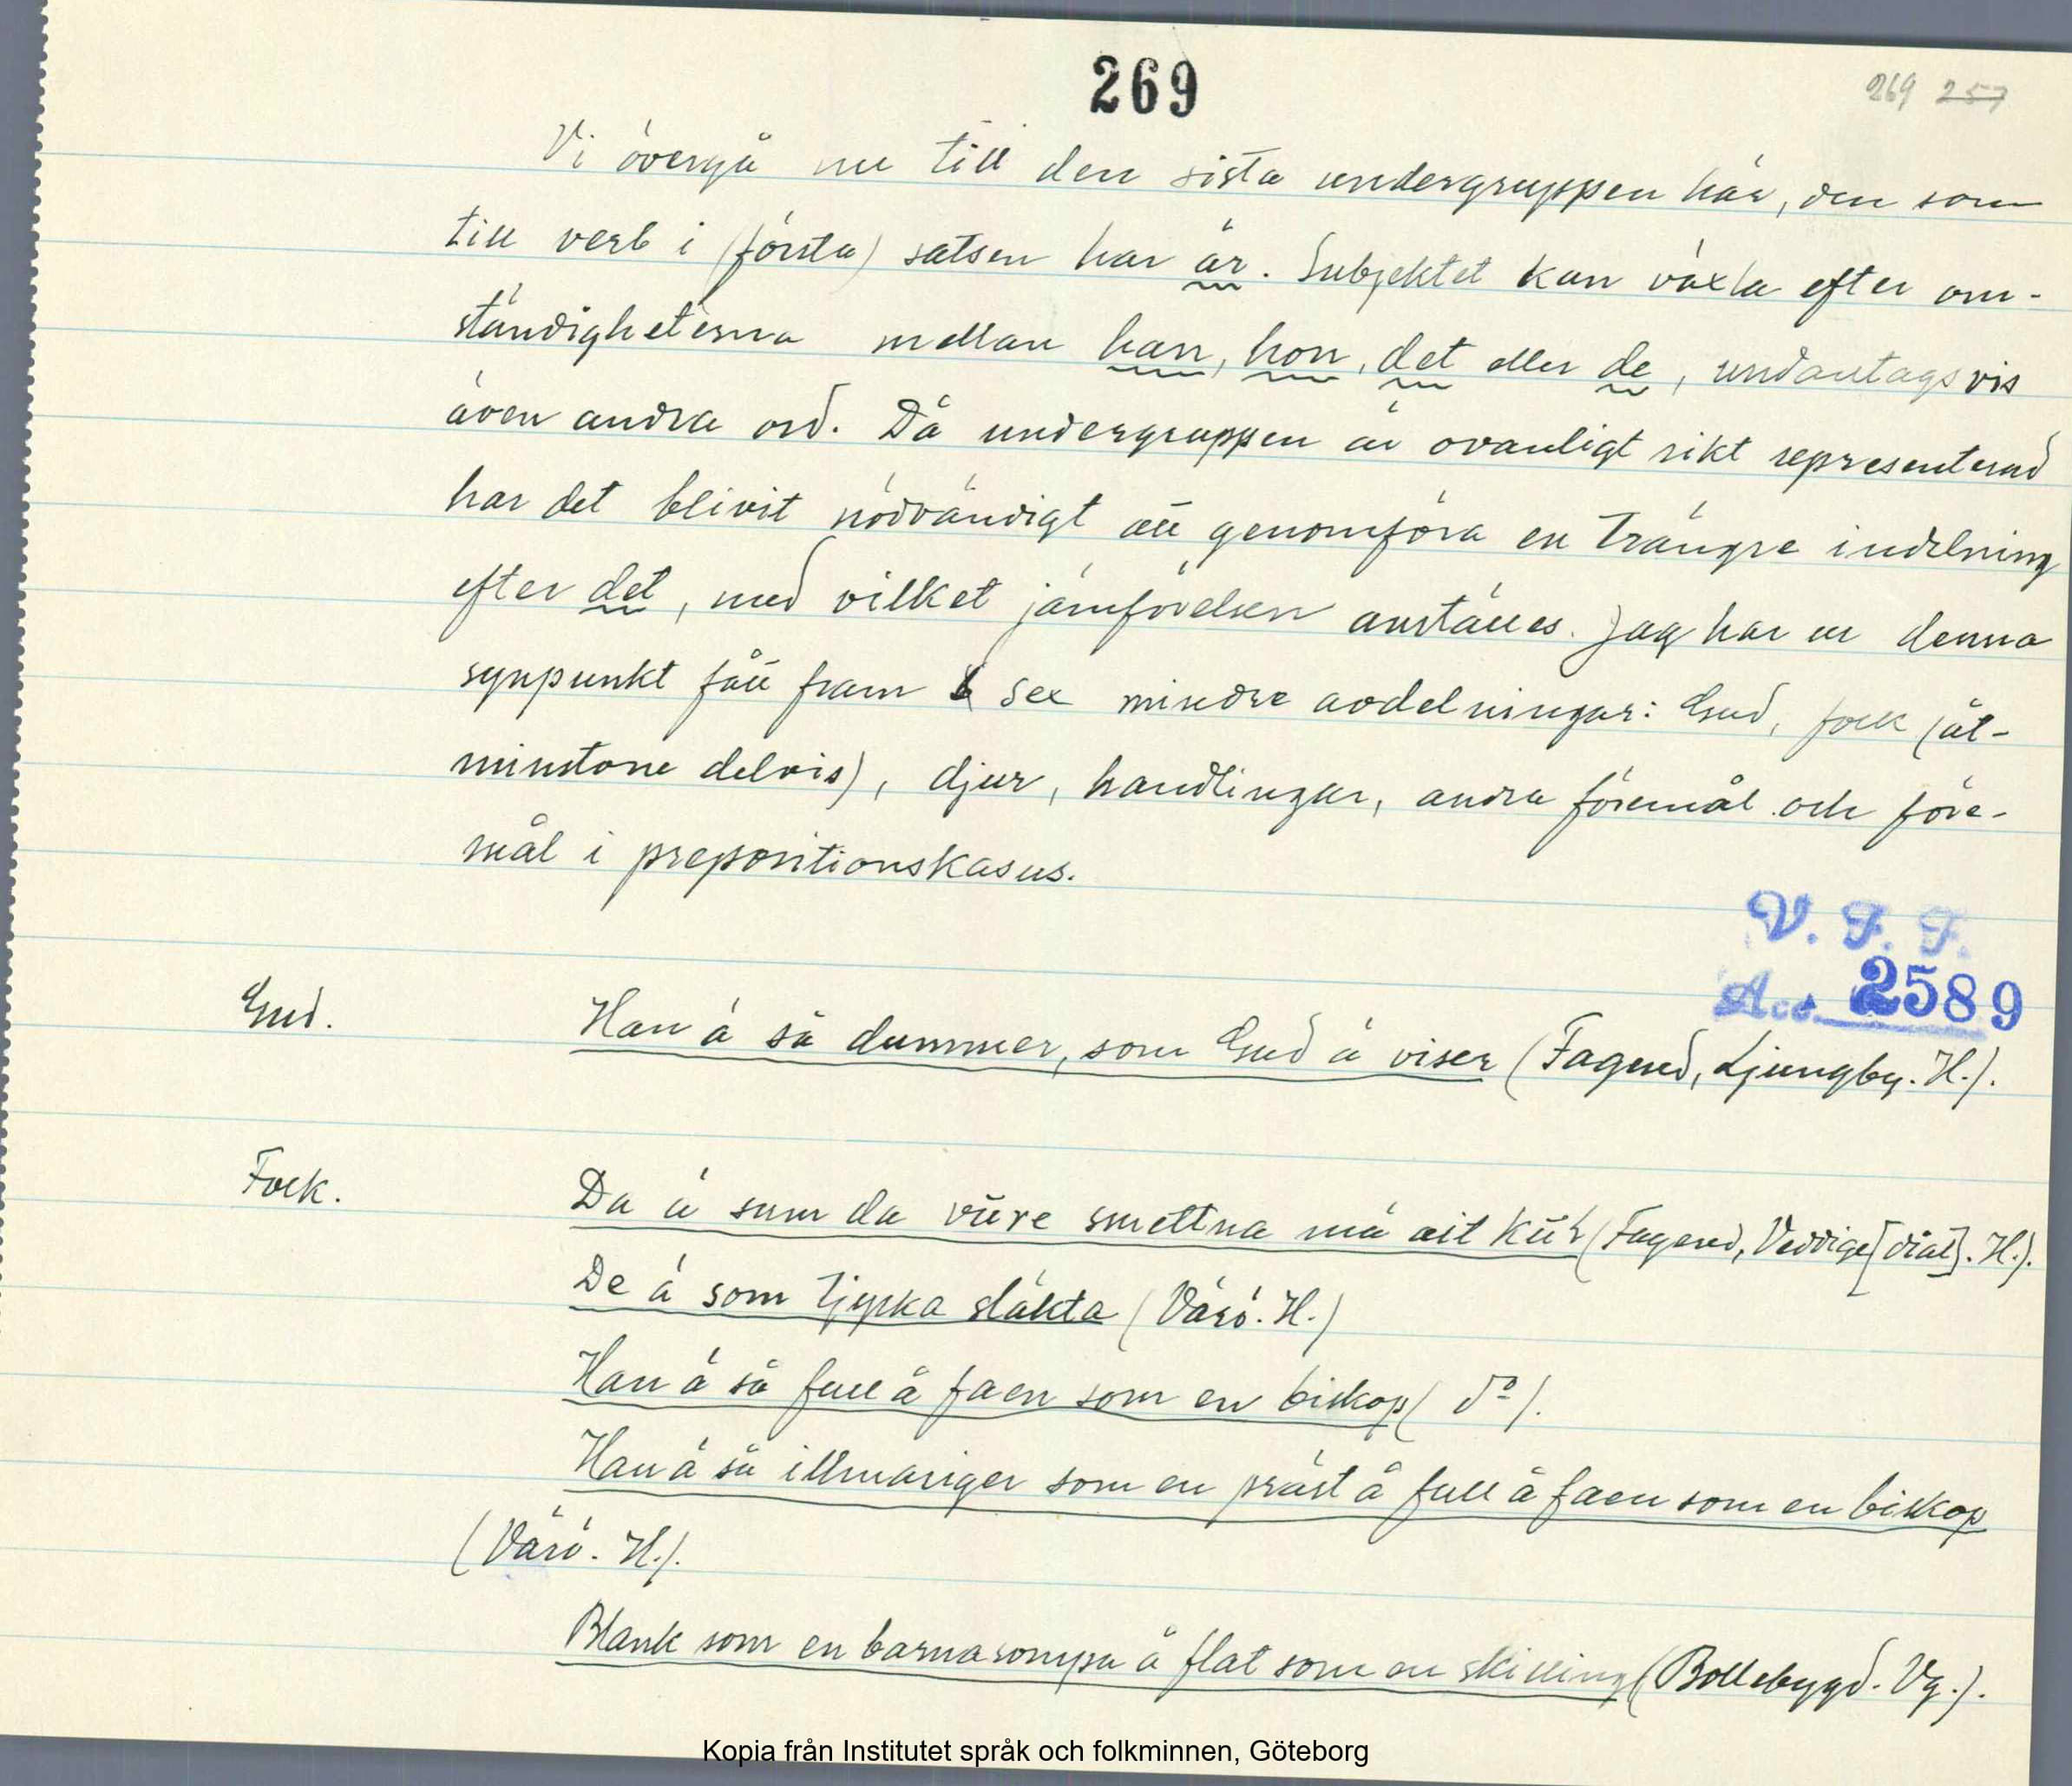 269
269 257
Vi övergå nu till den sista undergruppen här, den som
till verb i (första) satsen har är. Subjektet kan växla efter om-
ständigheterna mellan han, hon, det eller de, undantagsvis
även andra ord. Då undergruppen är ovanligt rikt representerad
har det blivit nödvändigt att genomföra en trängre indelning
efter det, med vilket jämförelsen anställes. Jag har ur denna
synpunkt fått fram sex mindre avdelningar: Gud, folk (åt-
minstone delvis), djur, handlingar, andra föremål och före-
mål i prepositionskasus.
V. F. F.
Acc. 2589
Gud. Han ä så dummer, som Gud ä viser (Fagered, Ljungby. H.).
Folk. Da ä sum da våre smettna mä ait (Fagered, Veddige [dial]. H.).
De ä som tjyska släkta (Värö. H.)
Han ä så full å faen som en biskop (do).
Han ä så illmariger som en präst å full å faen som en biskop
(Värö. H.).
Blank som en barnarompa å flat som en skilling (Bollebygd. Vg.).
Kopia från Institutet språk och folkminnen, Göteborg